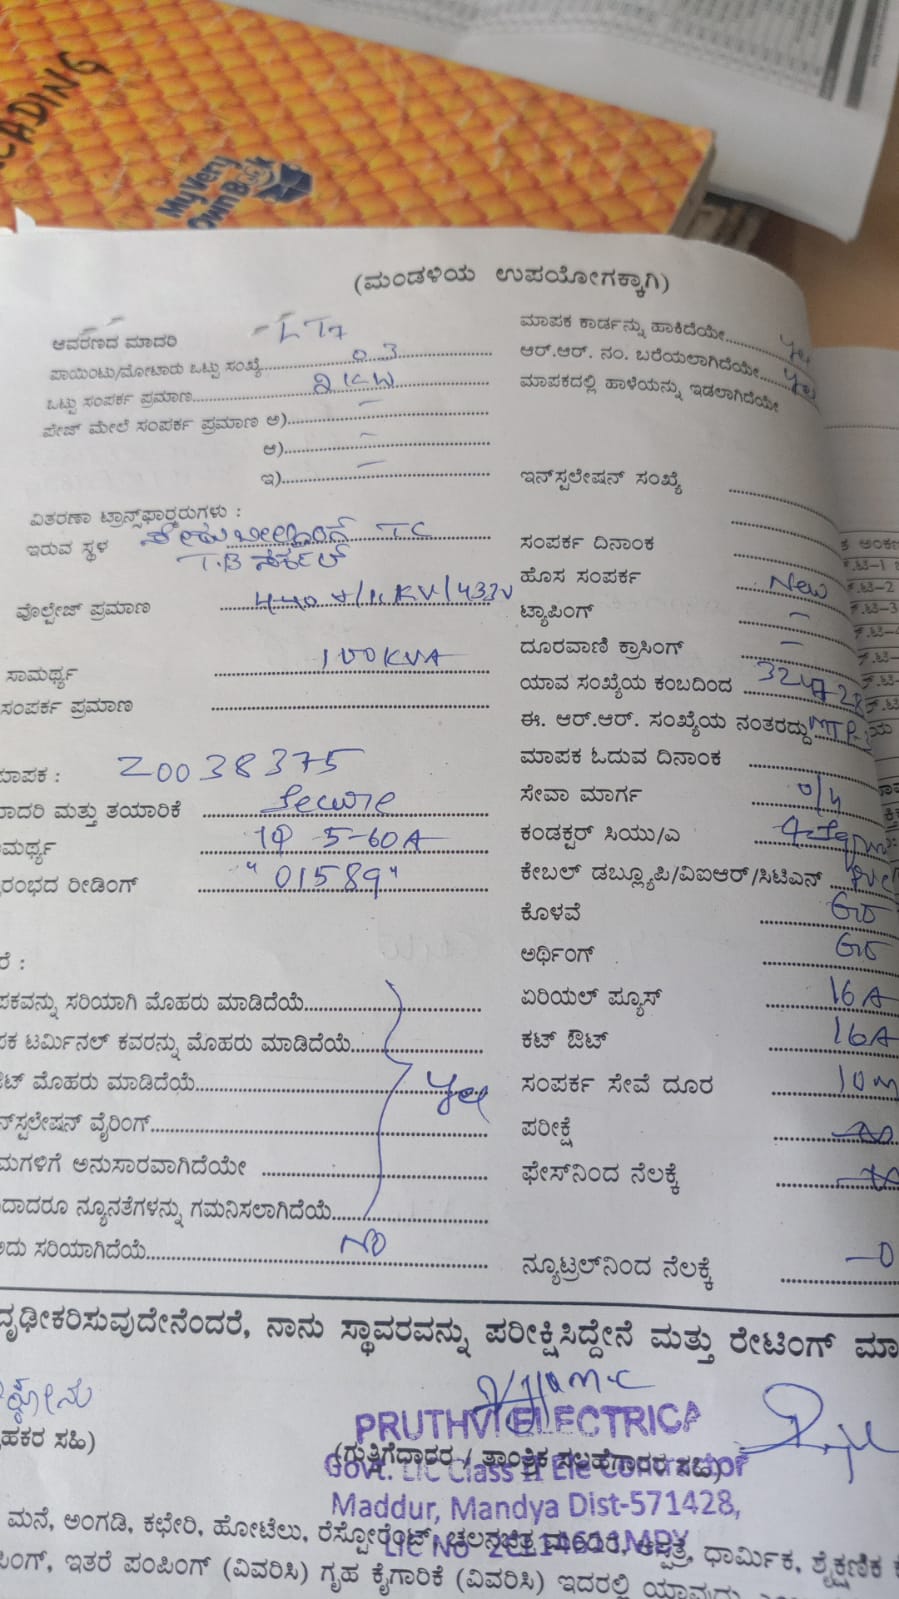 EADING
My Very
Own Book
(ಮಂಡಳಿಯ ಉಪಯೋಗಕ್ಕಾಗಿ)
ಆವರಣದ ಮಾದರಿ LT7
ಪಾಯಿಂಟು/ಮೋಟಾರು ಒಟ್ಟು ಸಂಖ್ಯೆ 03
ಒಟ್ಟು ಸಂಪರ್ಕ ಪ್ರಮಾಣ 2KW
ಪೇಜ್ ಮೇಲೆ ಸಂಪರ್ಕ ಪ್ರಮಾಣ ಅ) –
ಆ) –
ಇ) –
ವಿತರಣಾ ಟ್ರಾನ್ಸ್‌ಫಾರ್ಮರುಗಳು :
ಇರುವ ಸ್ಥಳ TC
T.B ಸರ್ಕಲ್
ವೊಲ್ಟೇಜ್ ಪ್ರಮಾಣ 440 V/11KV/433V
ಸಾಮರ್ಥ್ಯ 100KVA
ಸಂಪರ್ಕ ಪ್ರಮಾಣ
ಮಾಪಕ : Z0038375
ಮಾದರಿ ಮತ್ತು ತಯಾರಿಕೆ Secure
ಸಾಮರ್ಥ್ಯ 1Φ 5-60A
ಪ್ರಾರಂಭದ ರೀಡಿಂಗ್ "01589"
ರೆ :
ಪಕವನ್ನು ಸರಿಯಾಗಿ ಮೊಹರು ಮಾಡಿದೆಯೆ
ಪಕ ಟರ್ಮಿನಲ್ ಕವರನ್ನು ಮೊಹರು ಮಾಡಿದೆಯೆ
ಟ್ ಮೊಹರು ಮಾಡಿದೆಯೆ Yes
ನ್‌ಸ್ಪಲೇಷನ್ ವೈರಿಂಗ್
ಮಗಳಿಗೆ ಅನುಸಾರವಾಗಿದೆಯೇ
ದಾದರೂ ನ್ಯೂನತೆಗಳನ್ನು ಗಮನಿಸಲಾಗಿದೆಯೆ
ಅದು ಸರಿಯಾಗಿದೆಯೆ NO
ಮಾಪಕ ಕಾರ್ಡನ್ನು ಹಾಕಿದೆಯೇ Yes
ಆರ್.ಆರ್. ನಂ. ಬರೆಯಲಾಗಿದೆಯೇ Yes
ಮಾಪಕದಲ್ಲಿ ಹಾಳೆಯನ್ನು ಇಡಲಾಗಿದೆಯೇ
ಇನ್‌ಸ್ಪಲೇಷನ್ ಸಂಖ್ಯೆ
ಸಂಪರ್ಕ ದಿನಾಂಕ
ಹೊಸ ಸಂಪರ್ಕ New
ಟ್ಯಾಪಿಂಗ್ –
ದೂರವಾಣಿ ಕ್ರಾಸಿಂಗ್ –
ಯಾವ ಸಂಖ್ಯೆಯ ಕಂಬದಿಂದ
ಈ. ಆರ್.ಆರ್. ಸಂಖ್ಯೆಯ ನಂತರದ್ದು
ಮಾಪಕ ಓದುವ ದಿನಾಂಕ
ಸೇವಾ ಮಾರ್ಗ o/h
ಕಂಡಕ್ಟರ್ ಸಿಯು/ಎ
ಕೇಬಲ್ ಡಬ್ಲ್ಯೂಪಿ/ವಿಐಆರ್/ಸಿಟಿಎನ್ PVC
ಕೊಳವೆ
ಅರ್ಥಿಂಗ್
ಏರಿಯಲ್ ಫ್ಯೂಸ್ 16A
ಕಟ್ ಔಟ್ 16A
ಸಂಪರ್ಕ ಸೇವೆ ದೂರ 10m
ಪರೀಕ್ಷೆ
ಫೇಸ್‌ನಿಂದ ನೆಲಕ್ಕೆ
ನ್ಯೂಟ್ರಲ್‌ನಿಂದ ನೆಲಕ್ಕೆ –0
ದೃಢೀಕರಿಸುವುದೇನೆಂದರೆ, ನಾನು ಸ್ಥಾವರವನ್ನು ಪರೀಕ್ಷಿಸಿದ್ದೇನೆ ಮತ್ತು ರೇಟಿಂಗ್ ಮಾ
ಹಕರ ಸಹಿ)
PRUTHVI ELECTRICA
(ಗುತ್ತಿಗೆದಾರರ / ತಾಂತ್ರಿಕ ಸಲಹೆಗಾರರ ಸಹಿ)
Govt. Lic Class II Ele Contractor
Maddur, Mandya Dist-571428,
ಮನೆ, ಅಂಗಡಿ, ಕಛೇರಿ, ಹೋಟೆಲು, ರೆಸ್ಟೋರೆಂಟ್, ಚಲನಚಿತ್ರ ಮಂದಿರ, ಆಸ್ಪತ್ರೆ, ಧಾರ್ಮಿಕ, ಶೈಕ್ಷಣಿಕ
ಪಿಂಗ್, ಇತರೆ ಪಂಪಿಂಗ್ (ವಿವರಿಸಿ) ಗೃಹ ಕೈಗಾರಿಕೆ (ವಿವರಿಸಿ) ಇದರಲ್ಲಿ ಯಾವುದು